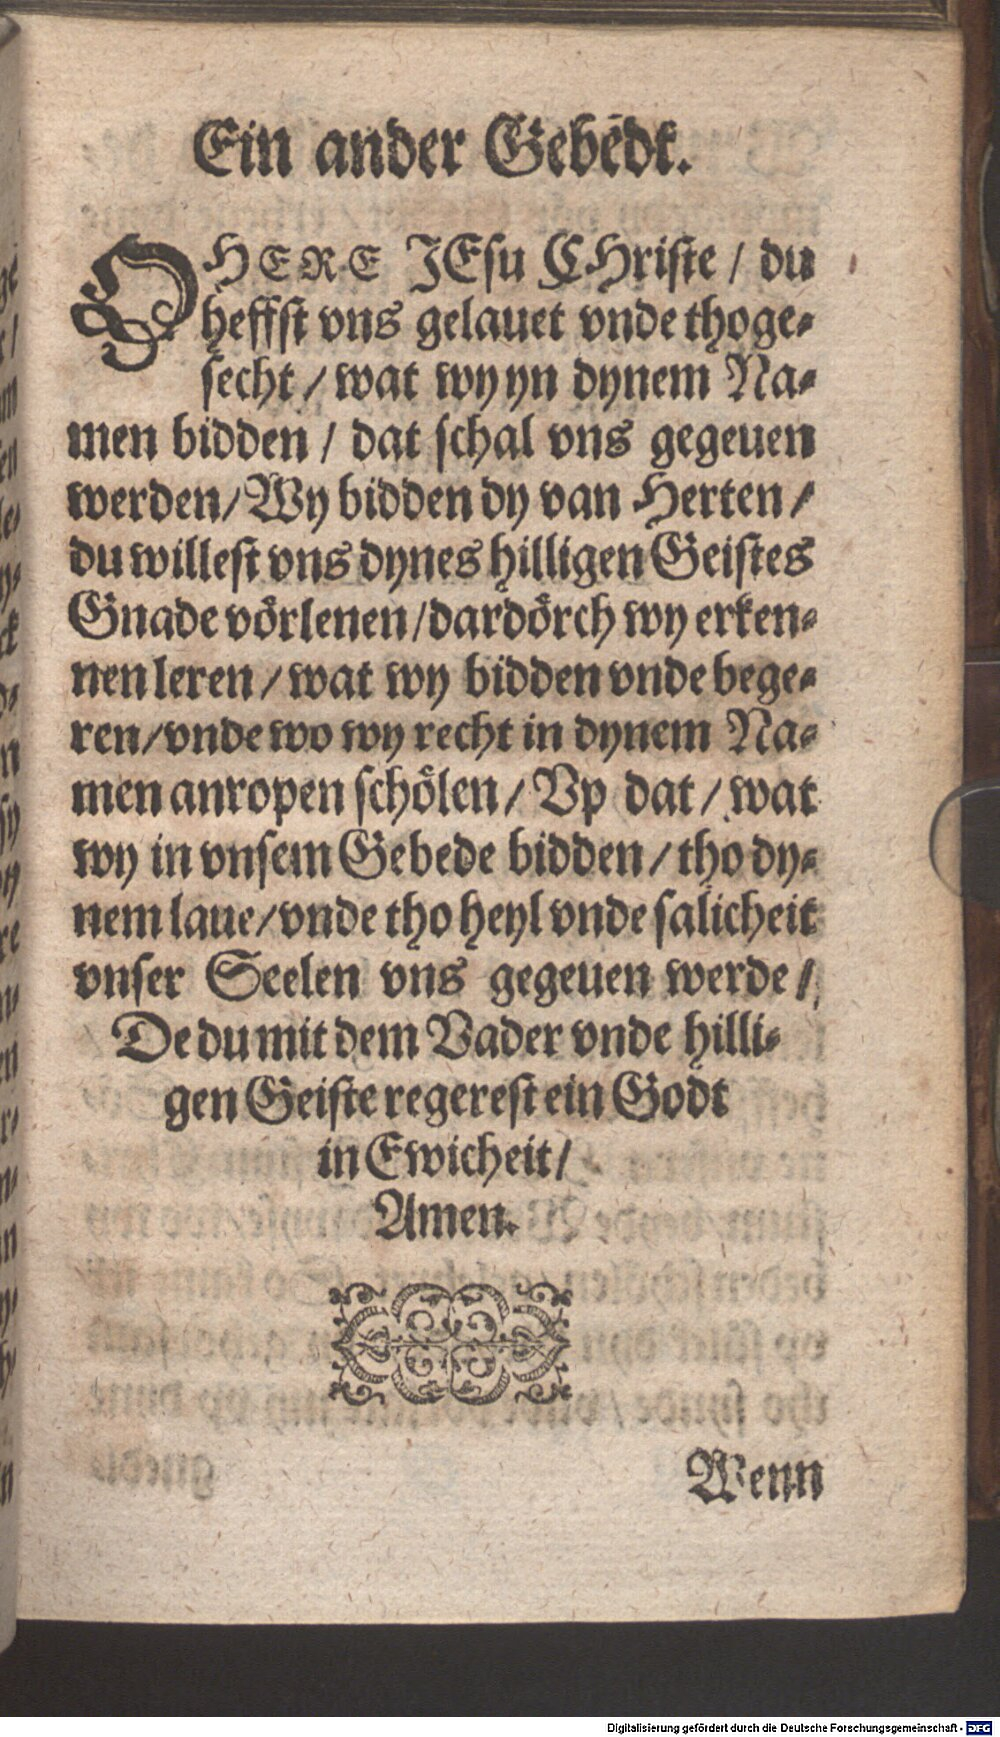 Ein ander Gebêdt.
O HERE JEsu CHriste / du
heffst vns gelauet vnde thoge-
secht / wat wy yn dynem Na-
men bidden / dat schal vns gegeuen
werden / Wy bidden dy van Herten /
du willest vns dynes hilligen Geistes
Gnade vörlenen / dardörch wy erken-
nen leren / wat wy bidden vnde bege-
ren / vnde wo wy recht in dynem Na-
men anropen schölen / Vp dat / wat
wy in vnsem Gebede bidden / tho dy-
nem laue / vnde tho heyl vnde salicheit
vnser Seelen vns gegeuen werde /
De du mit dem Vader vnde hilli-
gen Geiste regerest ein Godt
in Ewicheit /
Amen.
Wenn
Digitalisierung gefördert durch die Deutsche Forschungsgemeinschaft - DFG